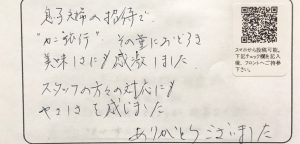 息子夫婦の招待で
その量におどろき
美味しさにも感激しました
スタッフの方々の対応にも
やさしさを感じました
ありがとうございました
スマホから投稿可能。
下記チェック欄を記入
後、フロントへご持参
下さい。